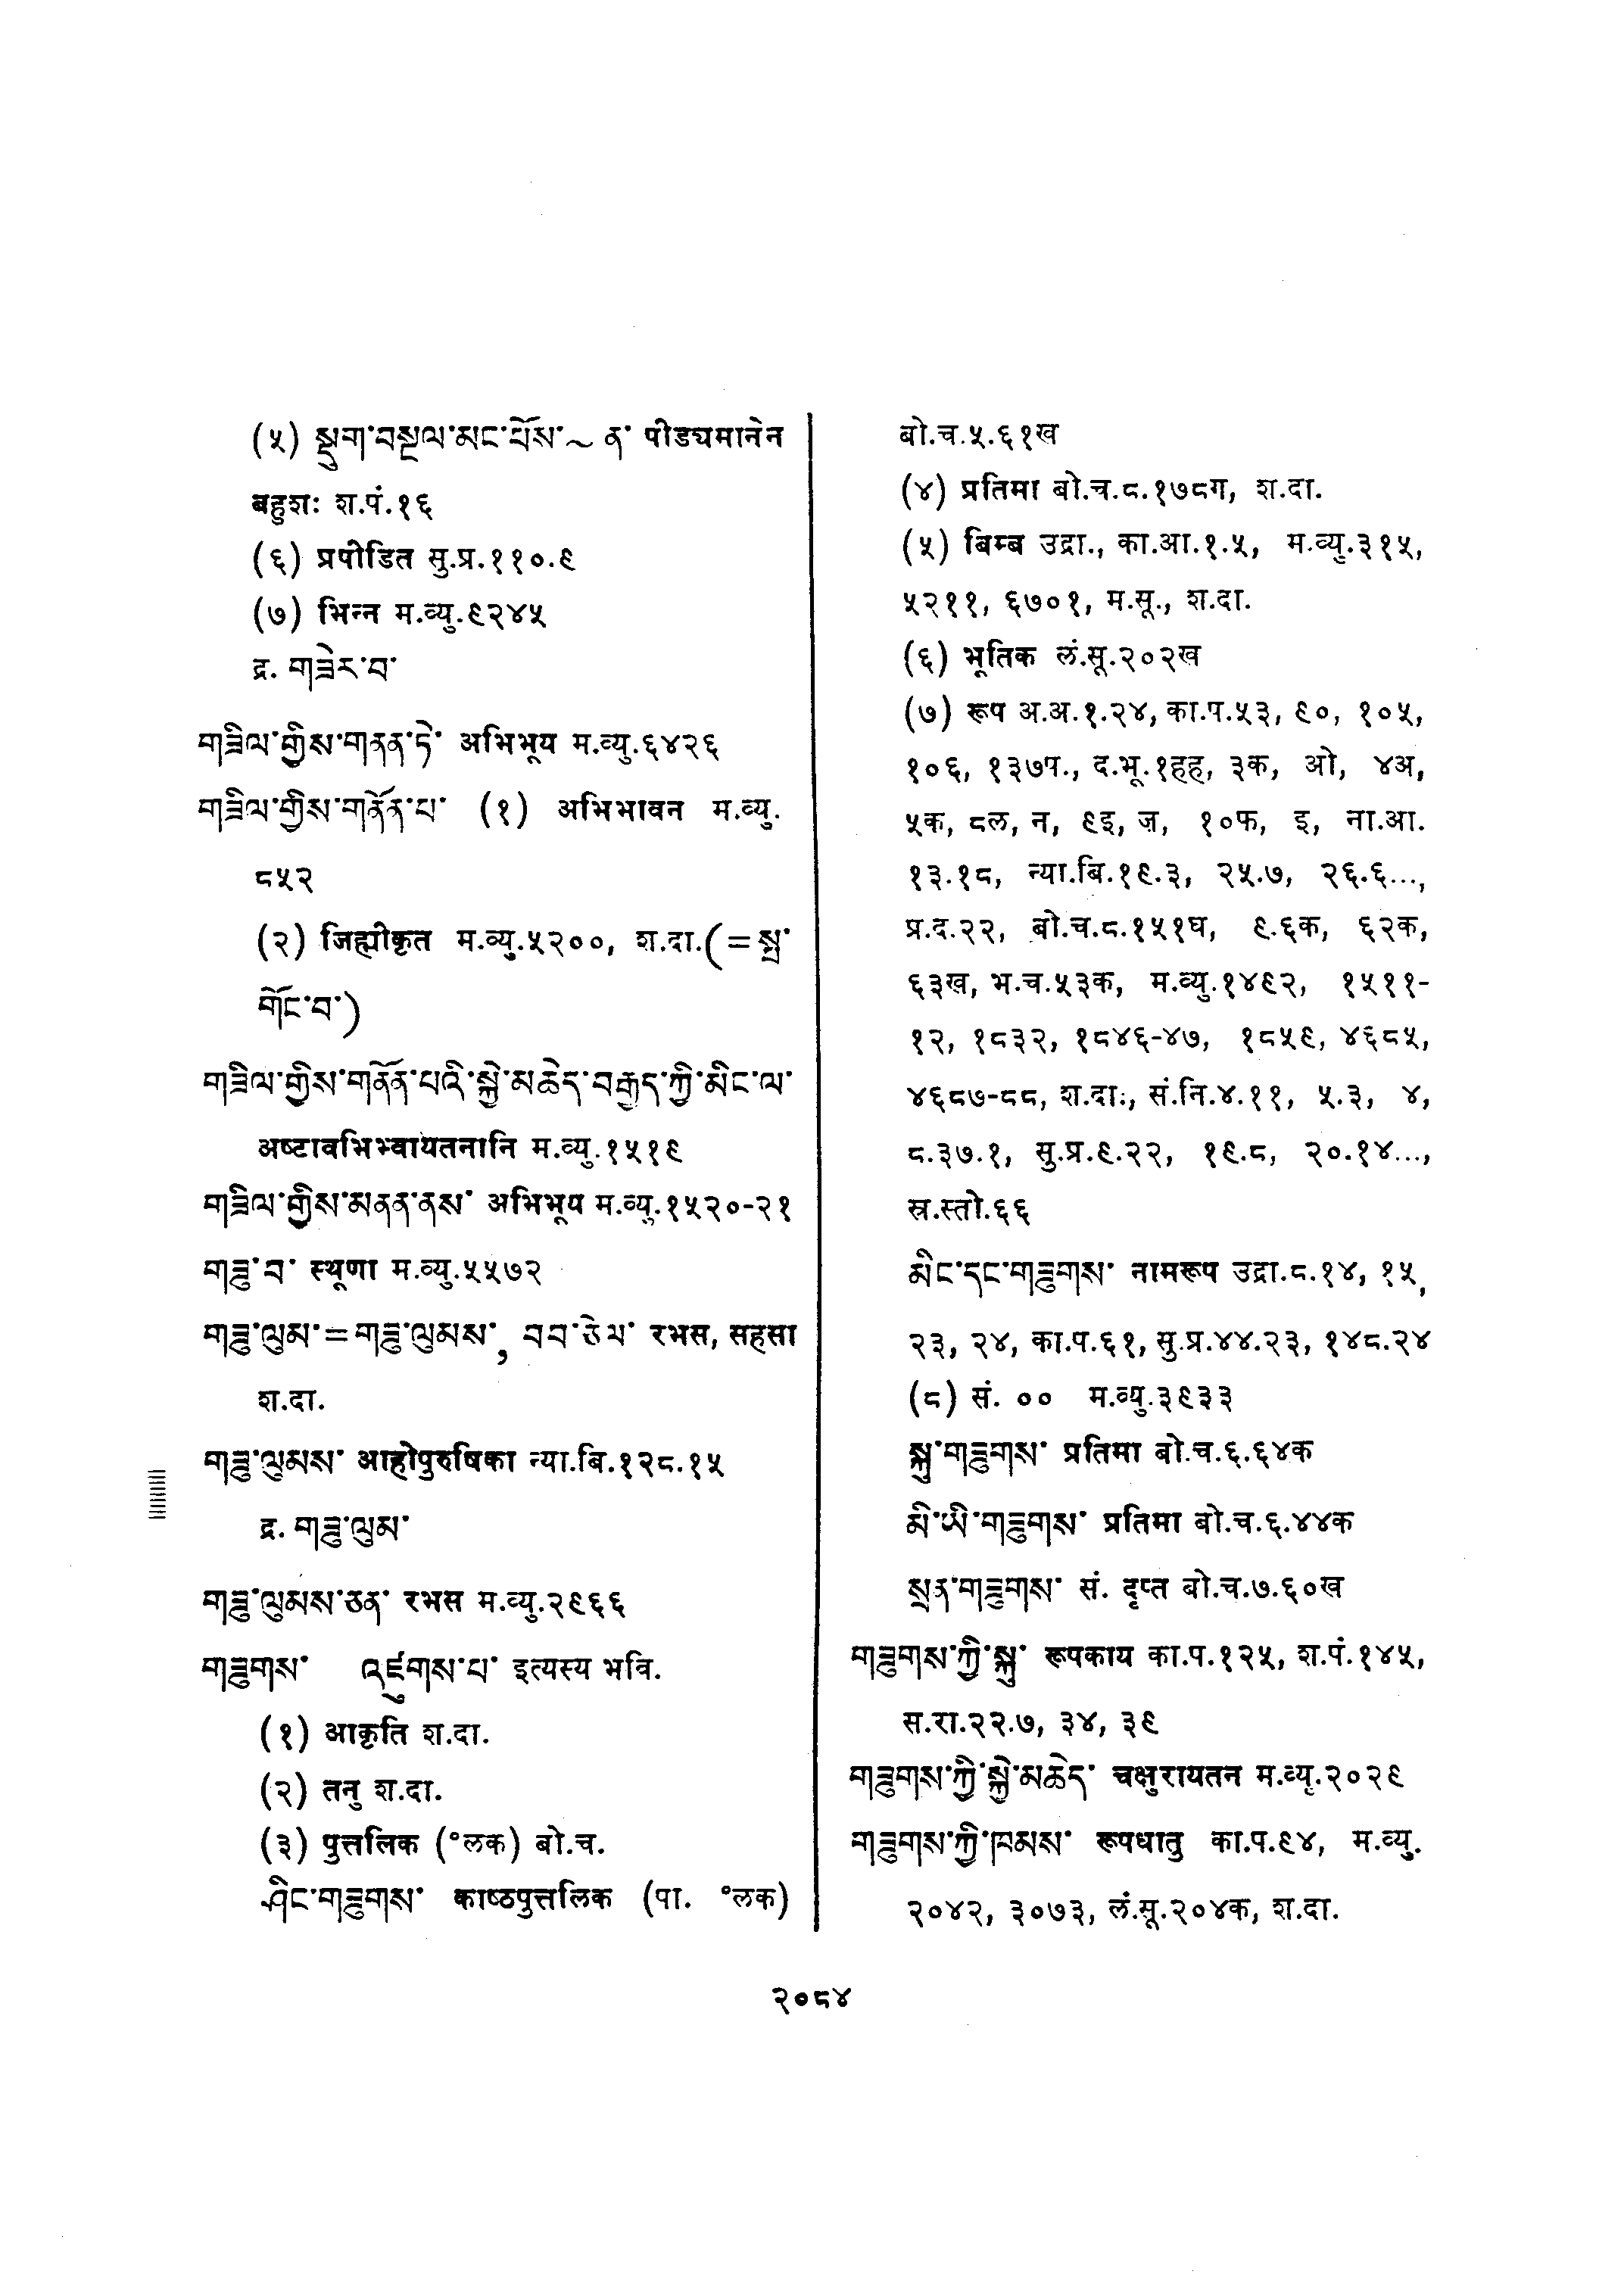 (५) སྡུག་བསྔལ་མང་པོས་~ ན་ पीडयमानेन
बहुशः श.पं.१६
(६) प्रपीडित सु.प्र.११०.९
(७) भिन्न म.व्यु.९२४५
द्र. གཟེར་བ་
གཟིལ་གྱིས་གནན་ཏེ་ अभिभूय म.व्यु.६४२६
གཟིལ་གྱིས་གནོན་པ་ (१) अभिभावन म.व्यु.
८५२
(२) जिह्मीकृत म.व्यु.५२००, श.दा.(=སྤ་
གོང་བ་)
གཟིལ་གྱིས་གནོན་པའི་སྐྱེ་མཆེད་བརྒྱད་ཀྱི་མིང་ལ་
अष्टावभिभ्वायतनानि म.व्यु.१५१९
གཟིལ་གྱིས་མནན་ནས་ अभिभूय म.व्यु.१५२०-२१
གཟུ་བ་ स्थूणा म.व्यु.५५७२
གཟུ་ལུམ་=གཟུ་ལུམས་, བབ་ཅོལ་ रभस, सहसा
श.दा.
གཟུ་ལུམས་ आहोपुरुषिका न्या.बि.१२८.१५
द्र. གཟུ་ལུམ་
གཟུ་ལུམས་ཅན་ रभस म.व्यु.२९६६
གཟུགས་ འཛུགས་པ་ इत्यस्य भवि.
(१) आकृति श.दा.
(२) तनु श.दा.
(३) पुत्तलिक (°लक) बो.च.
ཤིང་གཟུགས་ काष्ठपुत्तलिक (पा. °लक)
बो.च.५.६१ख
(४) प्रतिमा बो.च.८.१७८ग, श.दा.
(५) बिम्ब उद्रा., का.आ.१.५, म.व्यु.३१५,
५२११, ६७०१, म.सू., श.दा.
(६) भूतिक लं.सू.२०२ख
(७) रूप अ.अ.१.२४, का.प.५३, ९०, १०५,
१०६, १३७प., द.भू.१हह, ३क, ओ, ४अ,
५क, ८ल, न, ९इ, ज़, १०फ, इ, ना.आ.
१३.१८, न्या.बि.१९.३, २५.७, २६.६...,
प्र.द.२२, बो.च.८.१५१घ, ९.६क, ६२क,
६३ख, भ.च.५३क, म.व्यु.१४९२, १५११-
१२, १८३२, १८४६-४७, १८५९, ४६८५,
४६८७-८८, श.दाः, सं.नि.४.११, ५.३, ४,
८.३७.१, सु.प्र.९.२२, १९.८, २०.१४...,
स्र.स्तो.६६
མིང་དང་གཟུགས་ नामरूप उद्रा.८.१४, १५,
२३, २४, का.प.६१, सु.प्र.४४.२३, १४८.२४
(८) सं. ०० म.व्यु.३९३३
སྐུ་གཟུགས་ प्रतिमा बो.च.६.६४क
མི་ཡི་གཟུགས་ प्रतिमा बो.च.६.४४क
སྲན་གཟུགས་ सं. दृप्त बो.च.७.६०ख
གཟུགས་ཀྱི་སྐུ་ रूपकाय का.प.१२५, श.पं.१४५,
स.रा.२२.७, ३४, ३९
གཟུགས་ཀྱི་སྐྱེ་མཆེད་ चक्षुरायतन म.व्यु.२०२९
གཟུགས་ཀྱི་ཁམས་ रूपधातु का.प.९४, म.व्यु.
२०४२, ३०७३, लं.सू.२०४क, श.दा.
२०८४